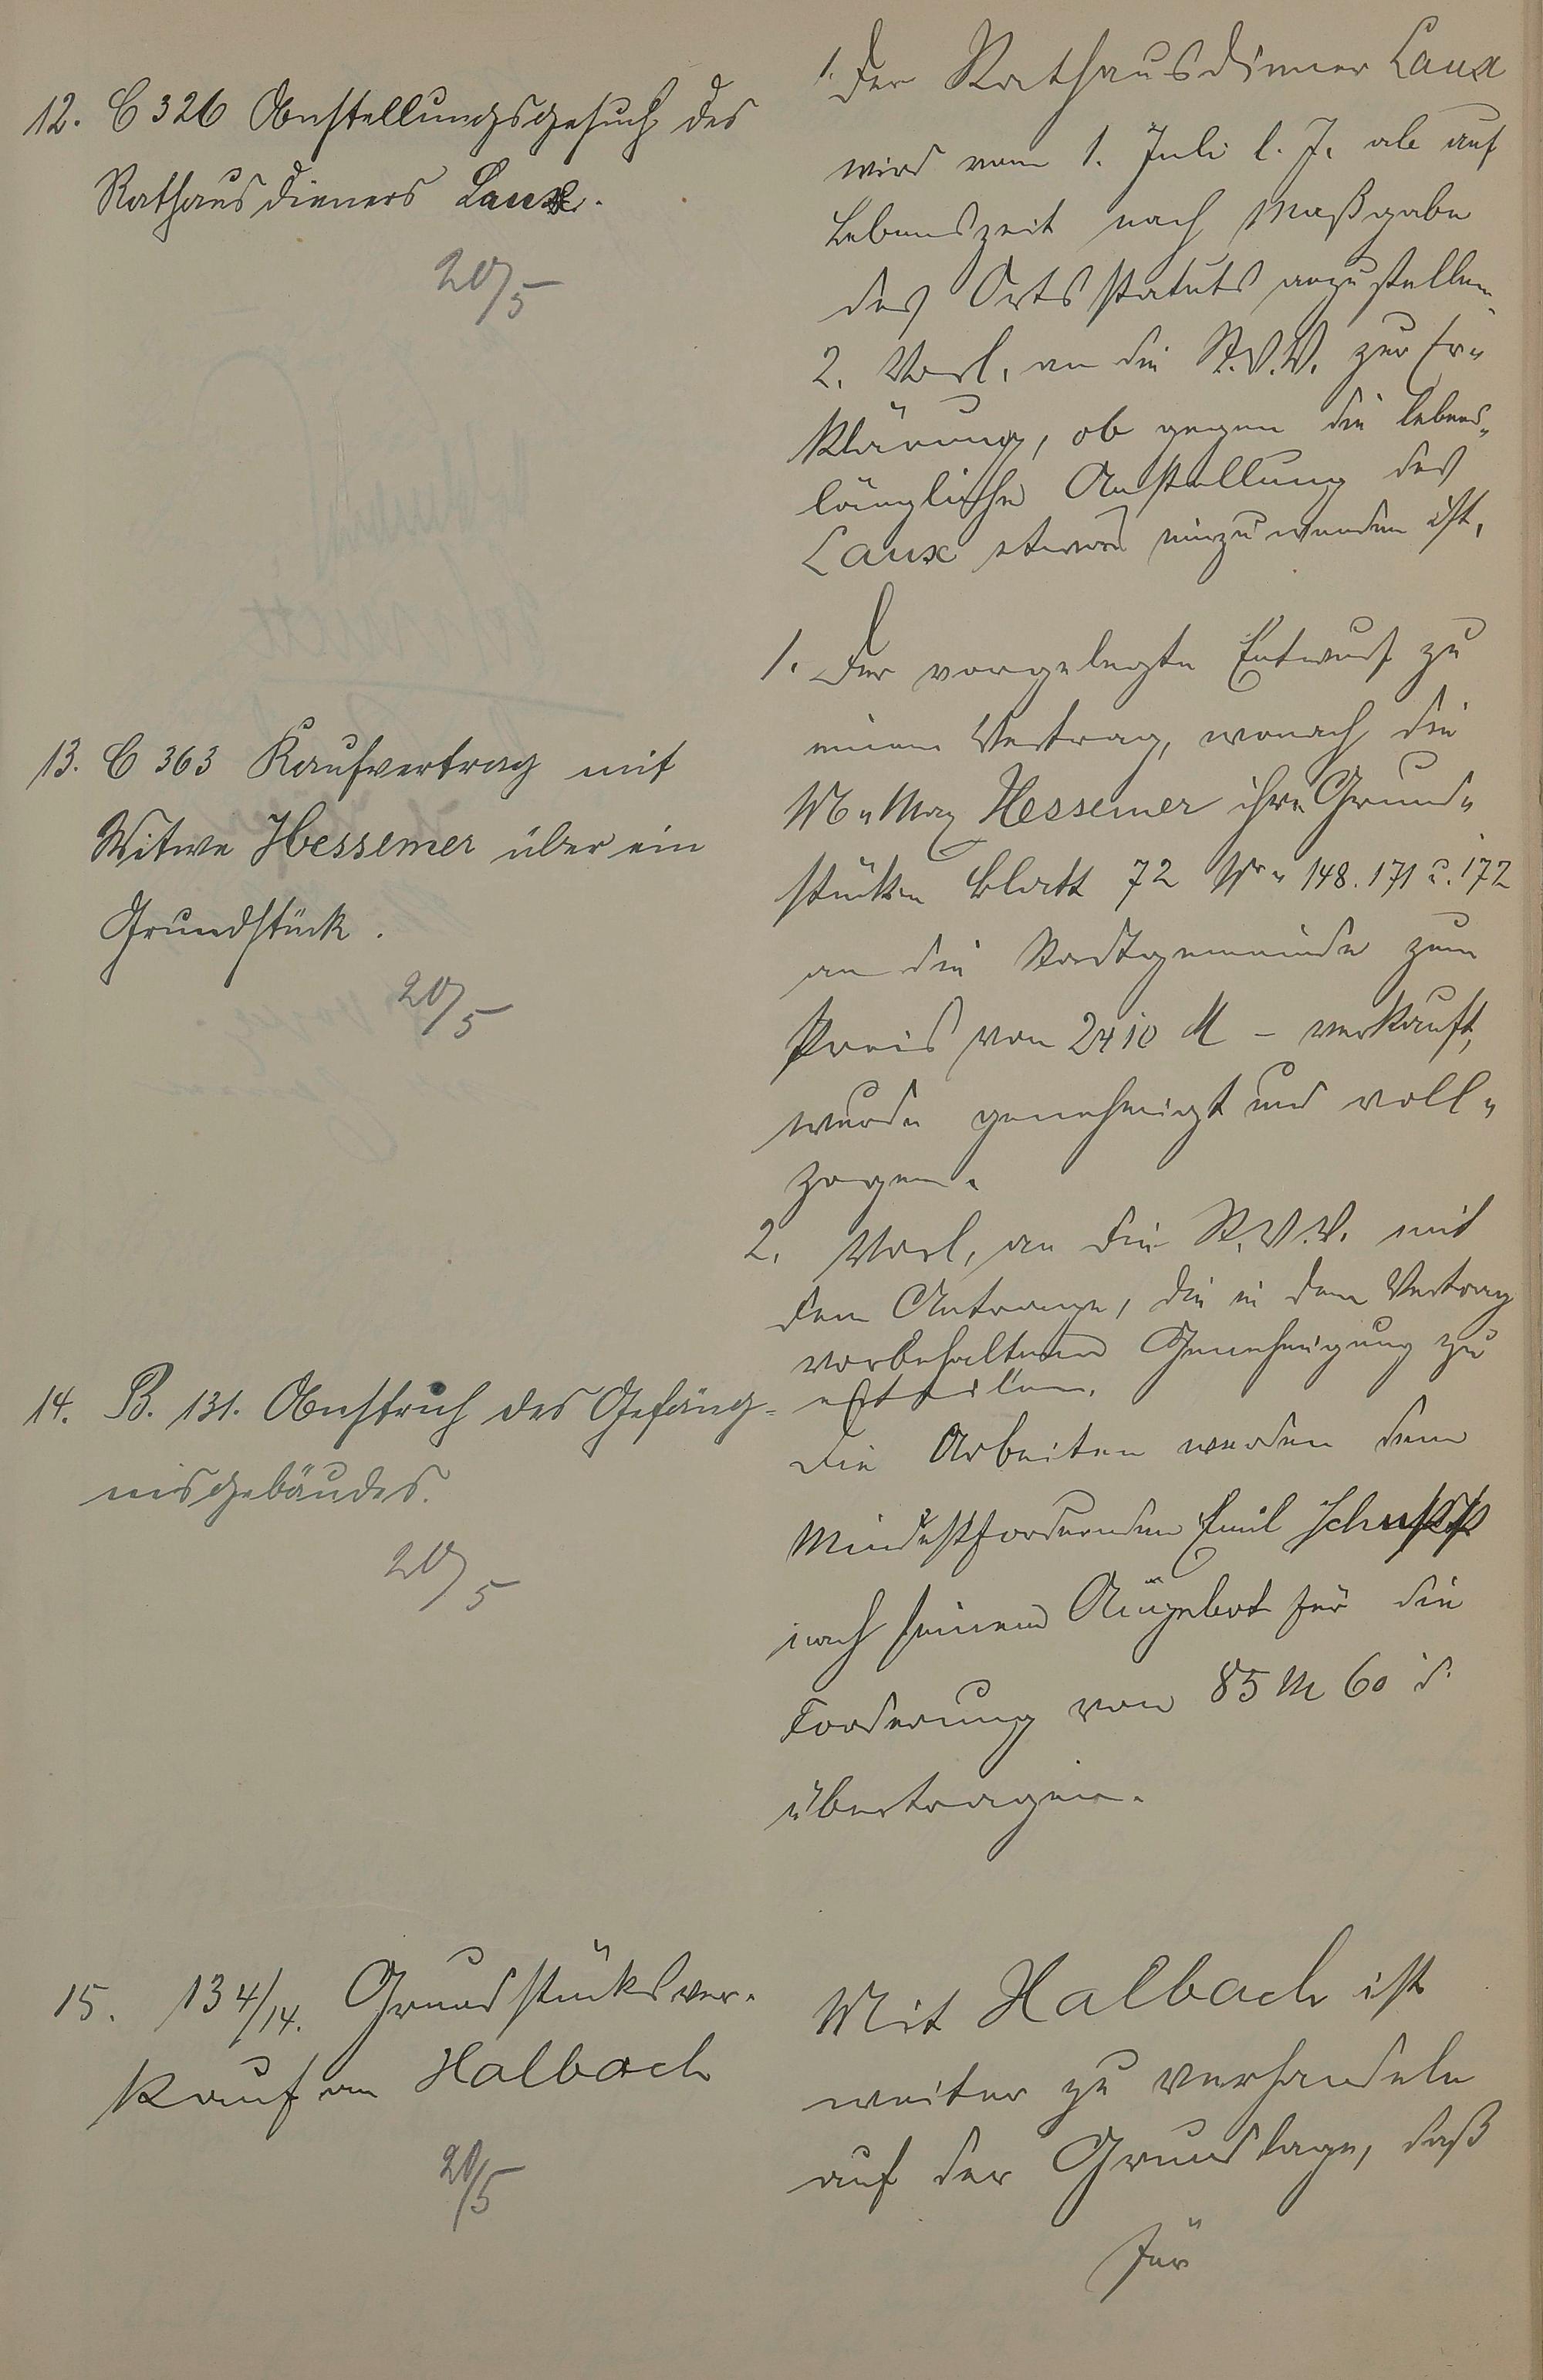 12. C 326 Anstellungsgesuch des
Rathausdieners Laux.
20/5
1. Der Rathausdiener Laux
wird vom 1. Juli l. J. ab auf
Lebenszeit nach Maßgabe
des Ortsstatuts anzustellen.
2. Vorl. an die St.V.V. zur Er-
klärung, ob gegen die lebens-
längliche Anstellung des
Laux etwas einzuwenden ist.
13. C 363 Kaufvertrag mit
Witwe Hessemer über ein
Grundstück.
20/5
1. Der vorgelegte Entwurf zu
einem Vertrag, wonach die
Hessemer ihre Grund-
stücke Blatt 72 Nr. 148. 171 u. 172
an die Stadtgemeinde zum
Preis von 2410 M - verkauft,
wurde genehmigt und voll-
zogen.
2. Vorl. an die St.V.V. mit
dem Antrage, die in dem Vertrag
vorbehaltene Genehmigung zu
erteilen.
14. B. 131. Anstrich des Gefäng-
nisgebäudes.
20/5
Die Arbeiten werden dem
Mindestfordernden Emil
nach seinem Angebot für die
Forderung von 85 M 60 d.
übertragen.
15. 134/14. Grundstücksver-
kauf an Halbach
20/5
Mit Halbach ist
weiter zu verhandeln
auf der Grundlage, daß
für